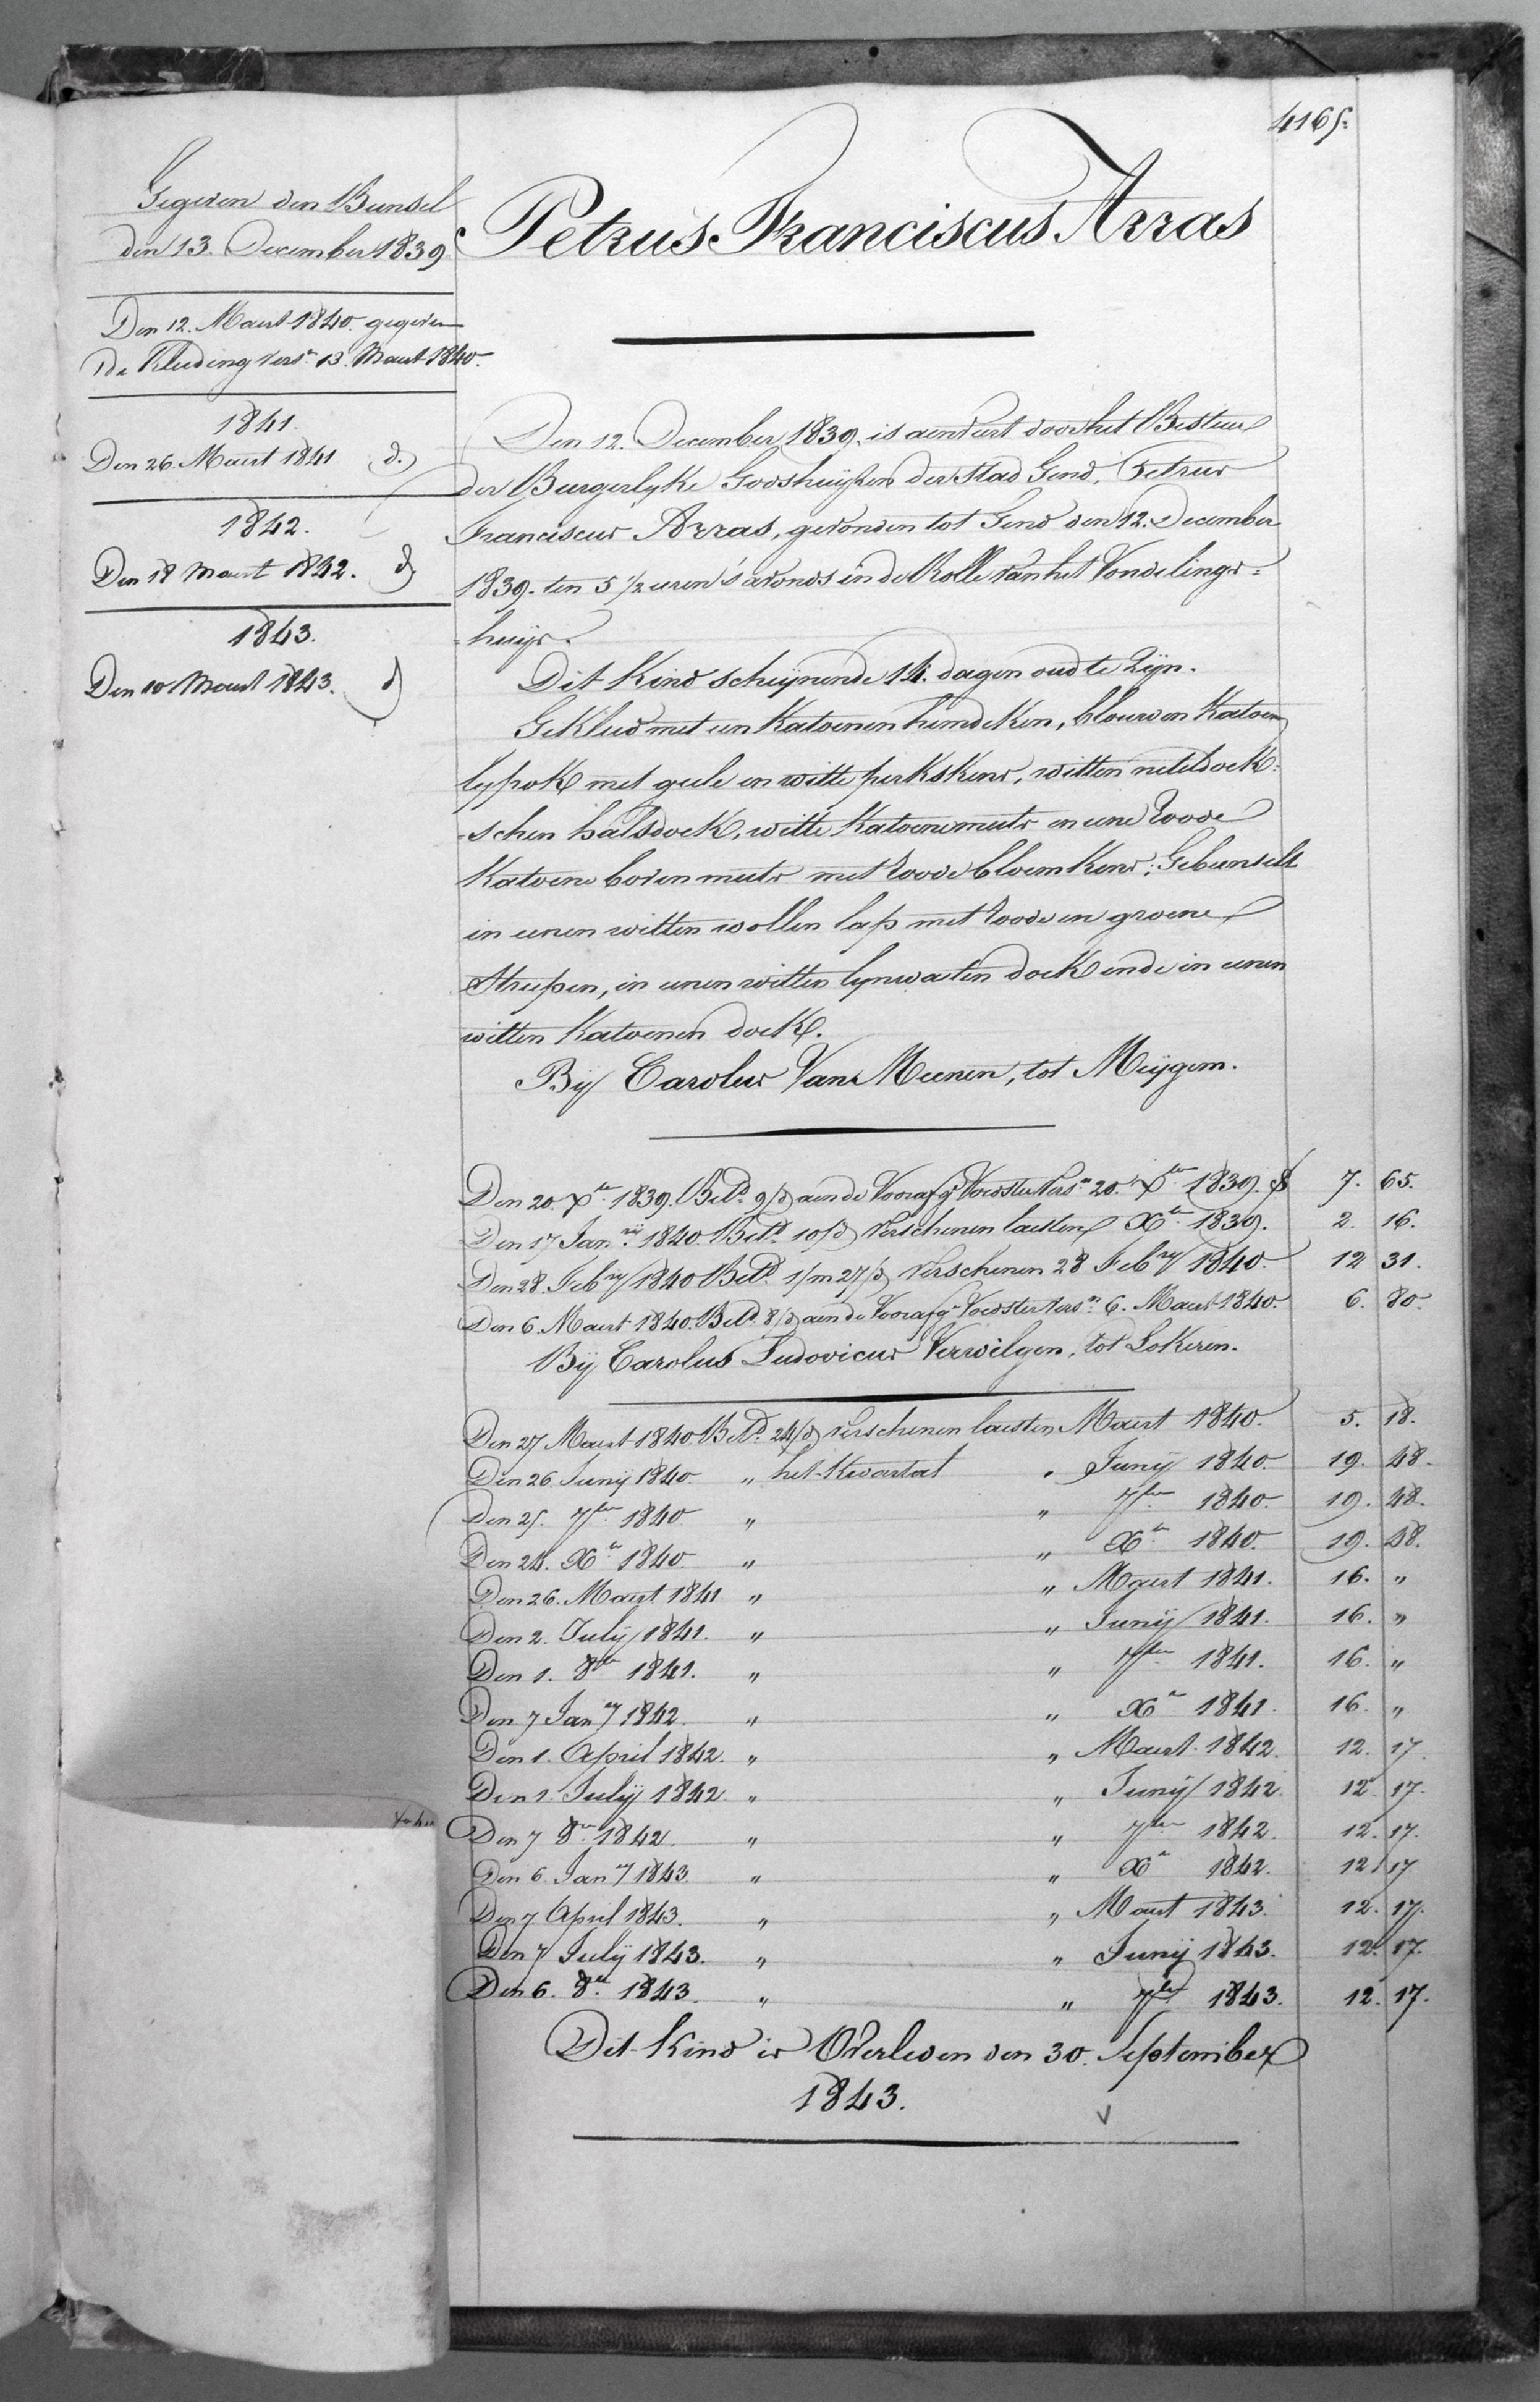 4165.
Gegeven den Bunsel
den 13. December 1839
Den 12. Maert 1840. gegeven
De Kleeding vers.n 13. Maert 1840.
1841.
Den 26. Maert 1841 d.)
1842.
Den 18 Maert 1842. d)
1843.
Den 10 Maert 1843. d)
Petrus Franciscus Arras
Den 12. December 1839. is aenveert door het Bestuer
der Burgerlyke Godshuijsen der Stad Gend, Petrus
Franciscus Arras, gevonden tot Gend den 12. December
1839. ten 5 1/2 uren s'avonds in de Rolle van het Vondelings=
=huijs.
Dit Kind schijnende 14. dagen oud te Zijn.
Gekleed met een Katoenen hemdeken, blouwen Katoen
lyfrok met geele en witte perkskens, witten neteldoek=
=schen halsdoek, witte Katoene muts en eene Roode
Katoene boven muts met Roode bloemkens; Gebunselt
in eenen witten wollen lap met Roode en groene
Streepen, in eenen witten lynwaeten doek ende in eenen
witten Katoenen doek.
Bij Carolus Van Meenen, tot Meijgem.
Den 20. Xber 1839. Betd. 9/d aen de Voorafg. Voedster Versn. 20. Xber 1839. 7. 65.
Den 17 Janrij 1840. Betd. 10/d Verschenen laesten Xber 1839. 2. 16.
Den 28. Febry 1840 Betd. 1/m 27/d Verschenen 28 Febry 1840. 12 31.
Den 6. Maert 1840. Betd. 8/d aen de Voorafg. Voedster Versn. 6. Maert 1840. 6. 80.
Bij Carolus Ludovicus Verwilgen, tot Lokeren.
Den 27 Maert 1840 Betd. 24/d verschenen laesten Maert 1840. 5. 18.
Den 26 Junij 1840 " het Kwartael " Junij 1840. 19. 48.
Den 25. 7ber 1840 " " 7ber 1840. 19. 48.
Den 24. Xber 1840. " " Xber 1840. 19. 48.
Den 26. Maert 1841 " " Maert 1841. 16. "
Den 2. Julij 1841. " " Junij 1841. 16. "
Den 1. 8ber 1841. " " 7ber 1841. 16. "
Den 7 Janry 1842. " " Xber 1841. 16. "
Den 1. April 1842. " " Maert 1842. 12. 17
Den 1. Julij 1842 " " Junij 1842. 12. 17.
Den 7 8ber 1842. " " 7ber 1842. 12. 17.
Den 6. Janry 1843. " " Xber 1842. 12. 17
Den 7 April 1843. " " Maert 1843. 12. 17.
Den 7 Julij 1843. " " Junij 1843. 12. 17.
Den 6. 8ber 1843. " " 7ber 1843. 12. 17.
Dit Kind is Overleden den 30. September
1843.